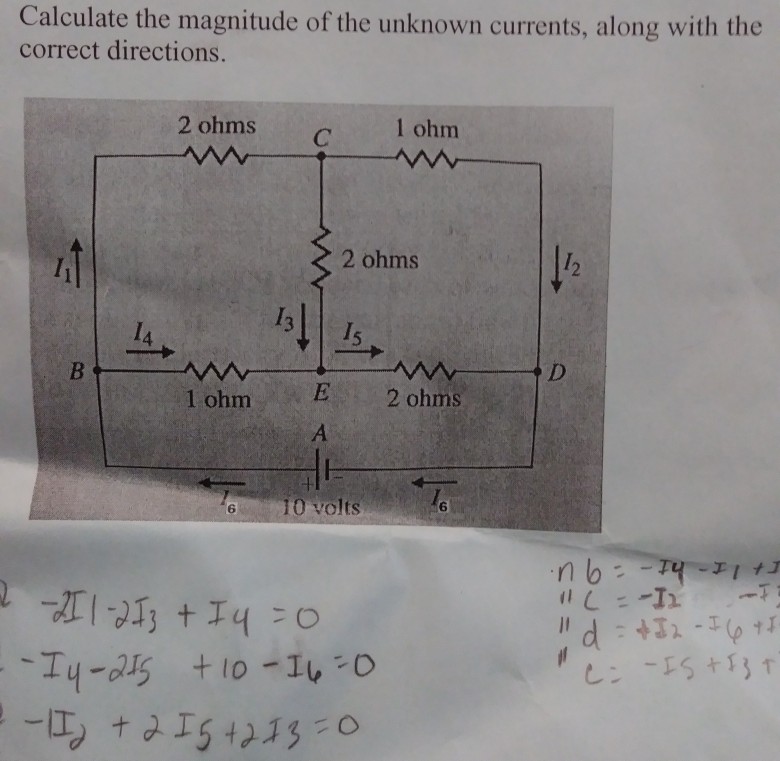 Calculate the magnitude of the unknown currents, along with the
correct directions.
2 ohms
C
1 ohm
I1
2 ohms
I2
I4
I3
I5
B
E
D
1 ohm
2 ohms
A
+ -
I6
10 volts
I6
-2I1-2I3 + I4 = 0
-I4-2I5 +10 -I6=0
-1I2 +2I5+2I3=0
n b = -I4 -I1 +I
" C = -I2
" d = +I2 -I6 +I
" c= -I5 +I3 +